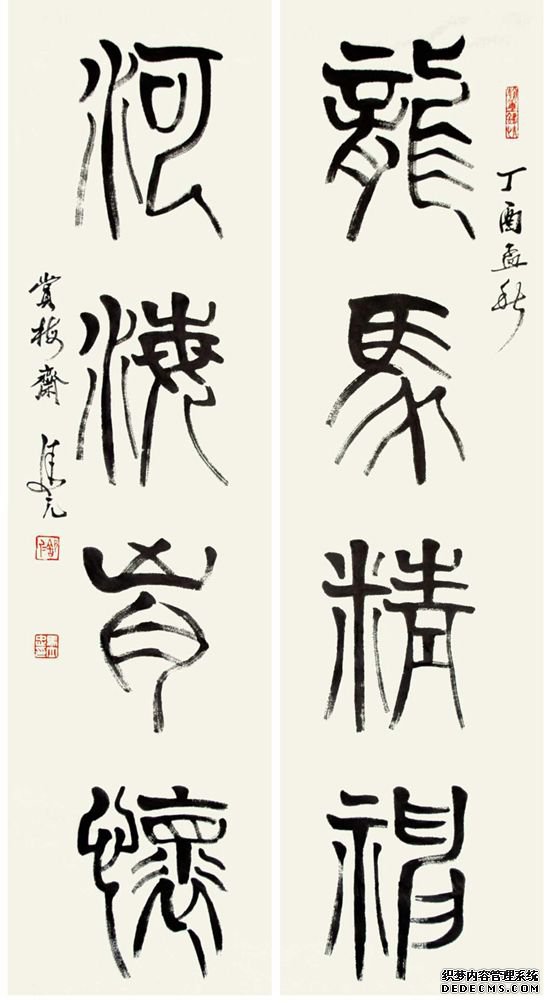 丁酉孟秋
龍馬精神
河海胸懷
賞梅齋
织梦内容管理系统
DEDECMS.COM